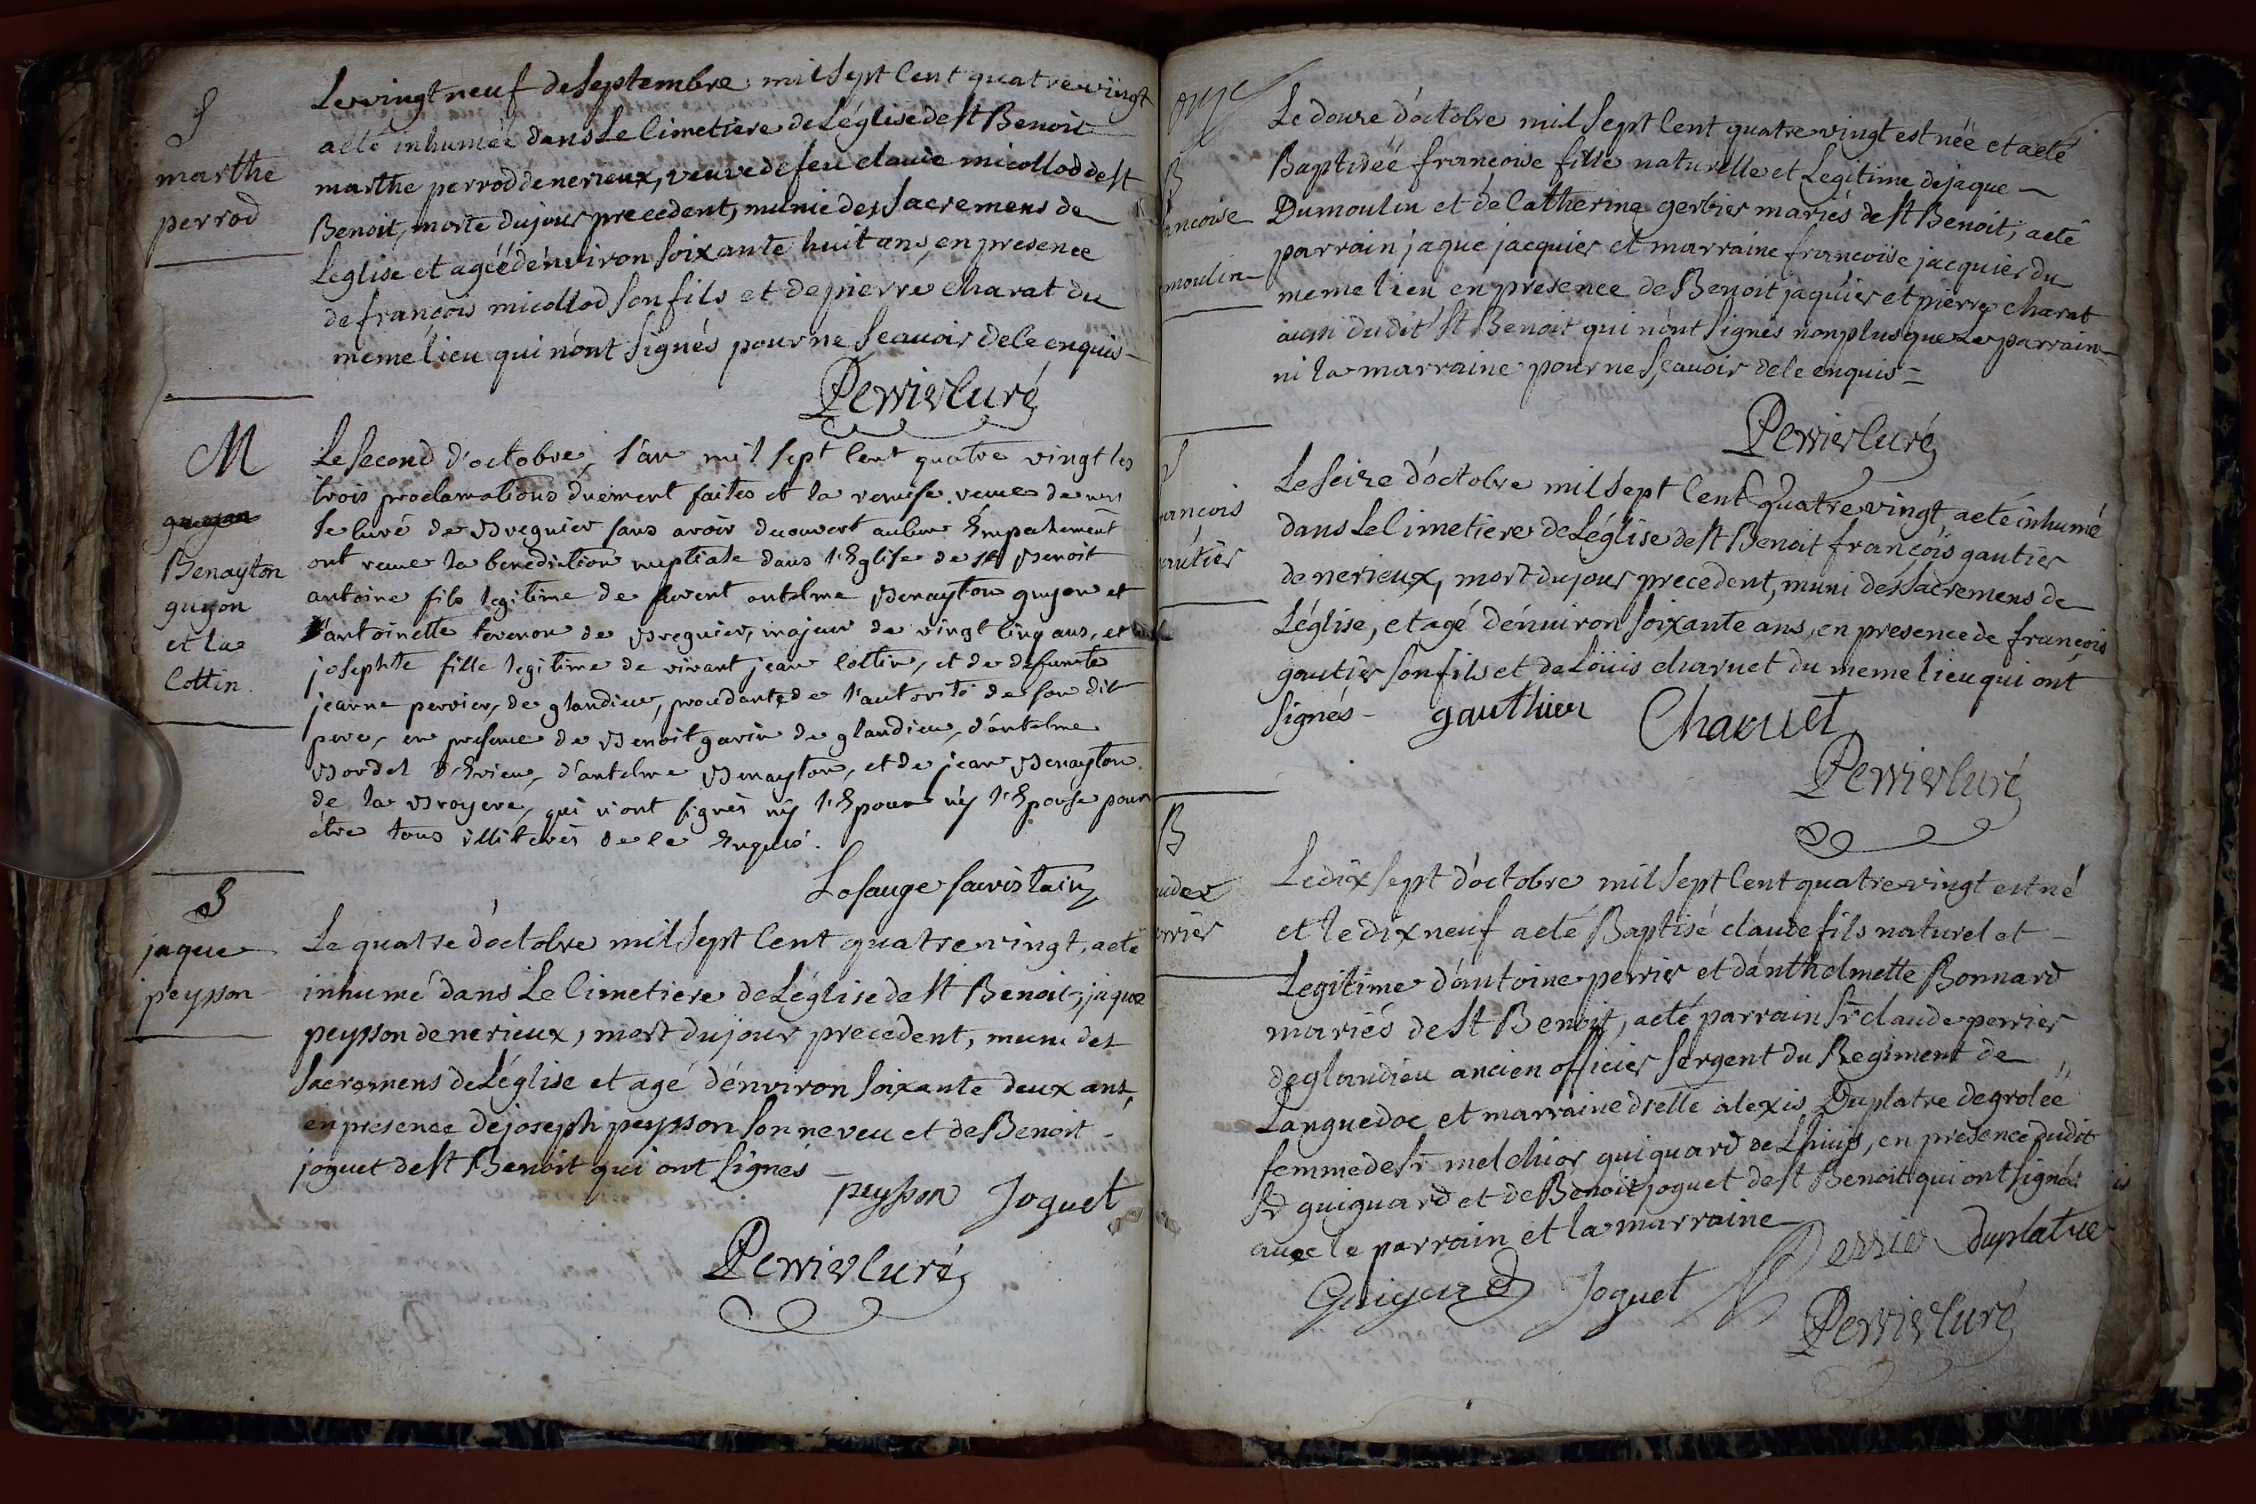 S
marthe
perrod
Le vingt neuf de Septembre mil Sept Cent quatre vingt
a eté inhumée dans Le Cimetiere de Léglise de St Benoit
marthe perrod de nerieux, veuve de feu claude micollod de St
Benoit, morte du jour precedent, munie des Sacremens de
Léglise et agéé d'énviron Soixante huit ans, en presence
de françois micollod Son fils et de pierre charat du
meme lieu qui n'ónt Signés pour ne Scauoir de le enquis
Perrier Curé
M
guyon
Benayton
guyon
et la
Cottin
Le Second d'octobre, l'an mil Sept Cent quatre vingt les
trois proclamations düement faites et la remise reçue de
le Curé de Bregnier sans avoir decouvert aucun Empechement
ont reçue la benediction nuptiale dans l'Eglise de St Benoit
antoine fils legitime de antelme Benayton guyon et
d'antoinette de Bregnier, majeur de vingt Cinq ans, et
josephte fille legitime de vivant jean Cottin, et de defunte
jeanne perrier, de glandieu, procedante de l'autorité de son dit
pere, en presence de Benoit gavin de glandieu, d'antelme
Bordel d'Evieu, d'antelme Benayton, et de jean Benayton
de la Broyere, qui n'ont signés ny l'Epoux ny l'Epouse pour
être tous illiterés de le Enquis.
Losauge sacristain
S
jaque
peysson
Le quatre d'óctobre mil Sept Cent quatre vingt, a eté
inhumé dans Le Cimetiere de Léglise de St Benoit, jaque
peysson de nerieux, mort du jour precedent, muni des
Sacremens de Léglise et agé d'énviron Soixante deux ans,
en présence de joseph peysson Son neveu et de Benoit
joguet de St Benoit qui ont Signés
peysson Joguet
Perrier Curé
B
ancoise
moulin
Le douze d'óctobre mil Sept Cent quatre vingt est néé et a eté
Baptiséé françoise fille naturelle et Legitime de jaque
Dumoulin et de Catherine gerbier mariés de St Benoit, a eté
parrain jaque jacquier et marraine francoise jacquier du
meme lieu en presence de Benoit jaquier et pierre charat
aussi dudit St Benoit qui n'ónt Signés non plus que Le parrain
ni la marraine pour ne Sçauoir de le enquis
Perrier Curé
S
rançois
gautier
Le Seize d'óctobre mil Sept Cent quatre vingt, a eté inhumé
dans Le Cimetiere de Léglise de St Benoit françois gautier
de nerieux, mort du jour precedent, muni des Sacremens de
Léglise, et agé d'énuiron Soixante ans, en presence de françois
gautier Son fils et de Loüis charuet du meme lieu qui ont
Signés gauthier Charuet
Perrier Curé
B
ude
errier
Le dix Sept d'óctobre mil Sept Cent quatre vingt est né
et le dix neuf a eté Baptisé claude fils naturel et
Legitime d'ántoine perrier et d'ánthelmette Bonnard
mariés de St Benoit, a eté parrain Sr claude perrier
de glandieu ancien officier Sergent du Regiment de
Languedoc et marraine delle alexis Duplatre de groléé
femme de Sr melchior guiguard de Lhuis, en presence dudit
Sr guiguard et de Benoit joguet de St Benoit qui ont Signés
avec le parrain et la marraine
Perrier Duplatre
Guiguard Joguet
Perrier Curé